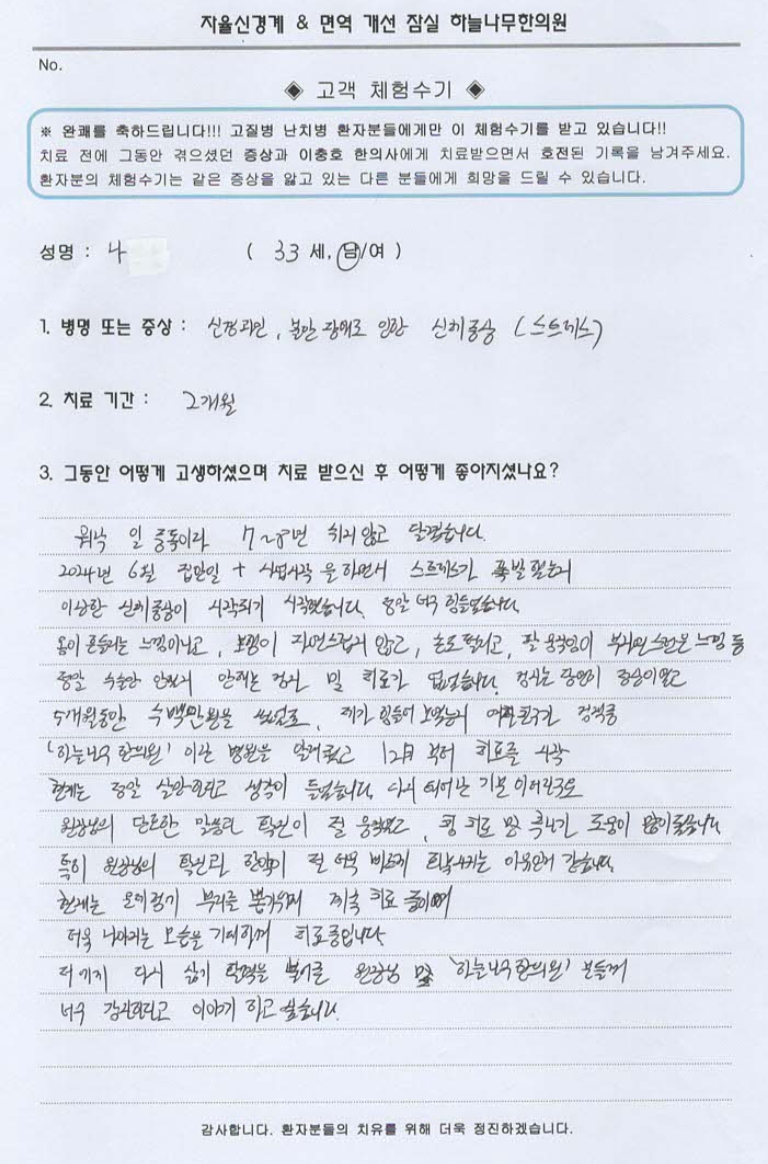 자율신경계 & 면역 개선 잠실 하늘나무한의원
No.
◈ 고객 체험수기 ◈
※ 완쾌를 축하드립니다!!! 고질병 난치병 환자분들에게만 이 체험수기를 받고 있습니다!!
치료 전에 그동안 겪으셨던 증상과 이충호 한의사에게 치료받으면서 호전된 기록을 남겨주세요.
환자분의 체험수기는 같은 증상을 앓고 있는 다른 분들에게 희망을 드릴 수 있습니다.
성명 : ( 33 세, 남/여 )
1. 병명 또는 증상 : 신경과민, 불안 장애로 인한 신체증상 (스트레스)
2. 치료 기간 : 2개월
3. 그동안 어떻게 고생하셨으며 치료 받으신 후 어떻게 좋아지셨나요?
워낙 일 중독이라 7~8년 쉬지않고 달렸습니다.
2024년 6월 집안일 + 사업시작을 하면서 스트레스가 폭발했는지
이상한 신체증상이 시작되기 시작했습니다. 정말 너무 힘들었습니다.
몸이 흔들리는 느낌이나고, 보행이 자연스럽지 않고, 손도 떨리고, 팔 움직임이 부자연스러운 느낌 등
정말 수술만 안했지 안해본 검사 및 치료가 없었습니다. 검사는 당연히 정상이었고
5개월동안 수백만원을 썼던도, 제가 힘들어 보였는지 여자친구가 검색중
'하늘나무한의원' 이란 병원을 알려줬고 12月 부터 치료를 시작
현재는 정말 살만하다고 생각이 들었습니다. 다시 태어난 기분이더라구요
원장님의 단호한 말씀과 확신이 절 움직였고, 침 치료 및 추나가 도움이 많이됐습니다
특히 원장님의 확신과 한약이 절 더욱 빠르게 회복시키는 이유인거 같습니다.
현재는 오래걸기 뿌리를 뽑기위해 지속 치료 중이며
더욱 나아지는 모습을 기대하며 치료중입니다.
다시 삶기 활력을 불어준 원장님 및 '하늘나무한의원' 분들께
너무 감사하다고 이야기 하고 싶습니다.
감사합니다. 환자분들의 치유를 위해 더욱 정진하겠습니다.